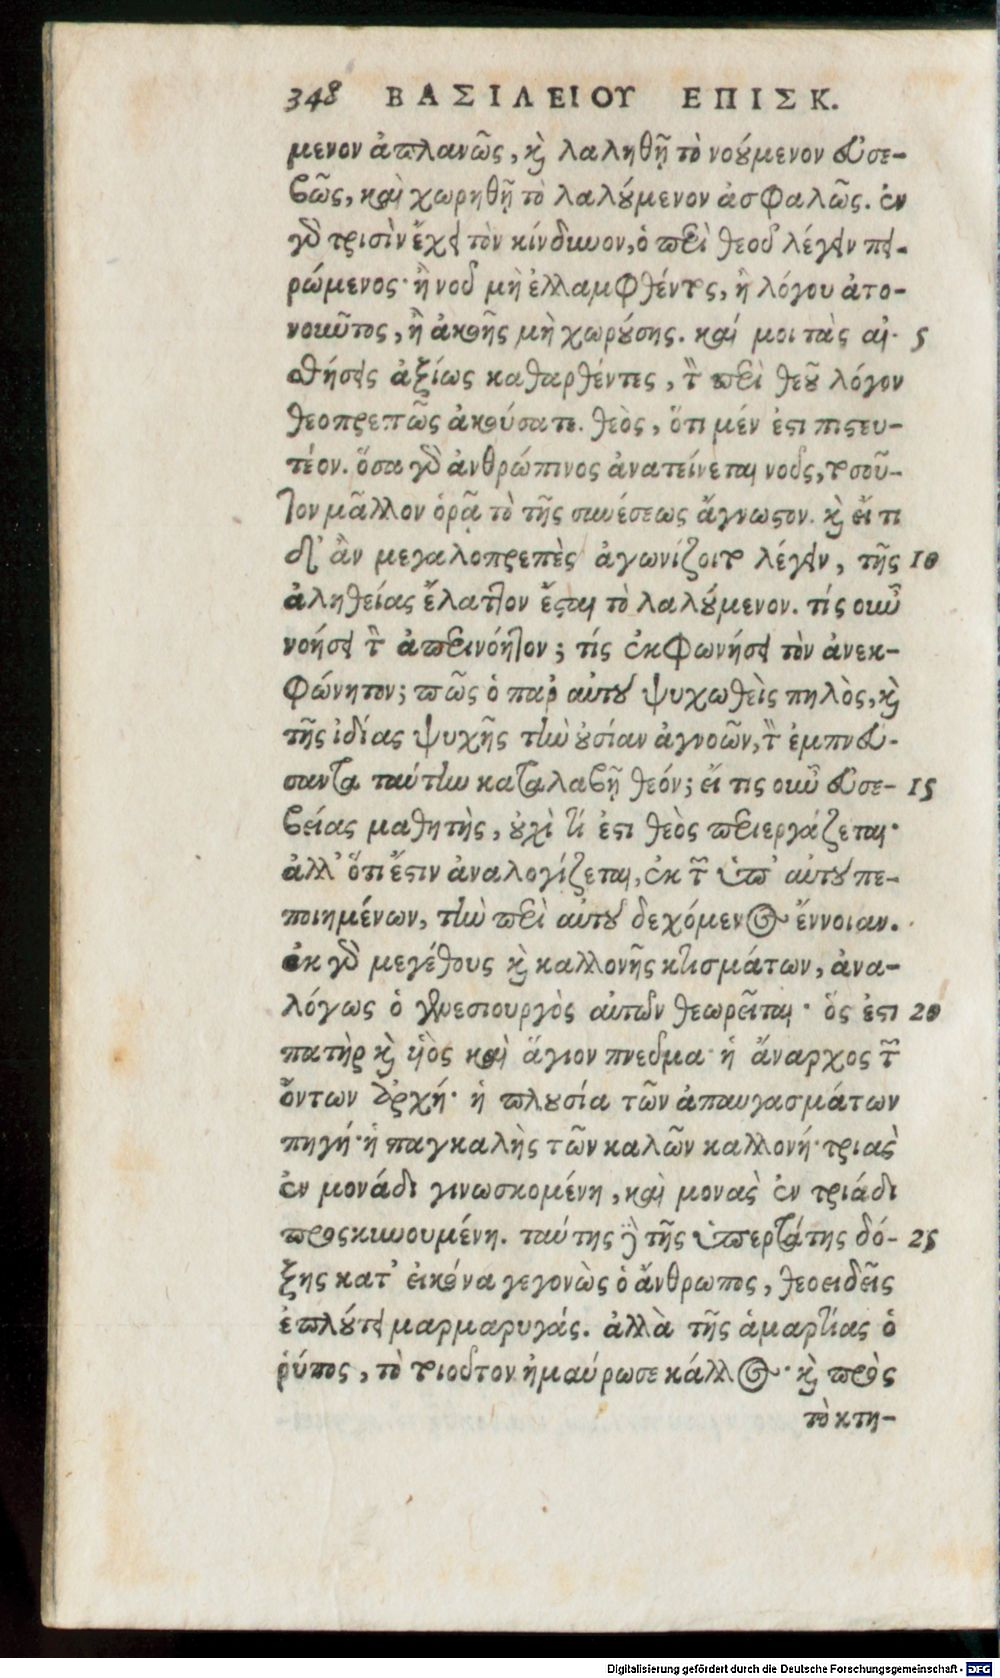 348 ΒΑΣΙΛΕΙΟΥ ΕΠΙΣΚ.
μενον ἀπλανῶς, καὶ λαληθῇ τὸ νούμενον εὐσε-
βῶς, καὶ χωρηθῇ τὸ λαλούμενον ἀσφαλῶς. ἐν
γὸ τρισὶν ἔχει τὸν κίνδυνον, ὁ περὶ θεοῦ λέγειν πει-
ρώμενος· ἢ νοῦ μὴ ἐλλαμφθέντος, ἢ λόγου ἀτο-
νοιῶτος, ἢ ἀκοῆς μὴ χωρούσης. καί μοι τὰς αἰ- 5
σθήσεις ἀξίως καθαρθέντες, τὸν περὶ θεοῦ λόγον
θεοπρεπῶς ἀκούσατε. θεὸς, ὅτι μέν ἐστι πιστευ-
τέον. ὅσα γὸ ἀνθρώπινος ἀνατείνεται νοῦς, τοσοῦ-
τον μᾶλλον ὁρᾷ τὸ τῆς συνέσεως ἄγνωστον. καὶ εἴ τι
δ' ἂν μεγαλοπρεπὲς ἀγωνίζοιτο λέγειν, τῆς 10
ἀληθείας ἔλαττον ἔσται τὸ λαλούμενον. τίς οὖν
νοήσει τὸν ἀπερινόητον; τίς ἐκφωνήσει τὸν ἀνεκ-
φώνητον; πῶς ὁ παρ' αὐτοῦ ψυχωθεὶς πηλὸς, καὶ
τῆς ἰδίας ψυχῆς τὴν οὐσίαν ἀγνοῶν, τὸν ἐμπνεύ-
σαντα ταύτην καταλαβῇ θεόν; εἴ τις οὖν εὐσε- 15
βείας μαθητὴς, οὐχὶ τί ἐστι θεὸς περιεργάζεται·
ἀλλ' ὅτι ἔστιν ἀναλογίζεται, ἐκ τῶν ὑπ' αὐτοῦ πε-
ποιημένων, τὴν περὶ αὐτοῦ δεχόμενος ἔννοιαν.
ἐκ γὸ μεγέθους καὶ καλλονῆς κτισμάτων, ἀνα-
λόγως ὁ γενεσιουργὸς αὐτῶν θεωρεῖται· ὅς ἐστι 20
πατὴρ καὶ υἱὸς καὶ ἅγιον πνεῦμα· ἡ ἄναρχος τῶν
ὄντων ἀρχή· ἡ πλουσία τῶν ἀπαυγασμάτων
πηγή· ἡ παγκαλὴς τῶν καλῶν καλλονή· τριὰς
ἐν μονάδι γινωσκομένη, καὶ μονὰς ἐν τριάδι
προσκυνουμένη. ταύτης γὸ τῆς ὑπερτάτης δό- 25
ξης κατ' εἰκόνα γεγονὼς ὁ ἄνθρωπος, θεοειδεῖς
ἐπλούτει μαρμαρυγάς. ἀλλὰ τῆς ἁμαρτίας ὁ
ῥύπος, τὸ τοιοῦτον ἠμαύρωσε κάλλος· καὶ πρὸς
τὸ κτη-
Digitalisierung gefördert durch die Deutsche Forschungsgemeinschaft - DFG